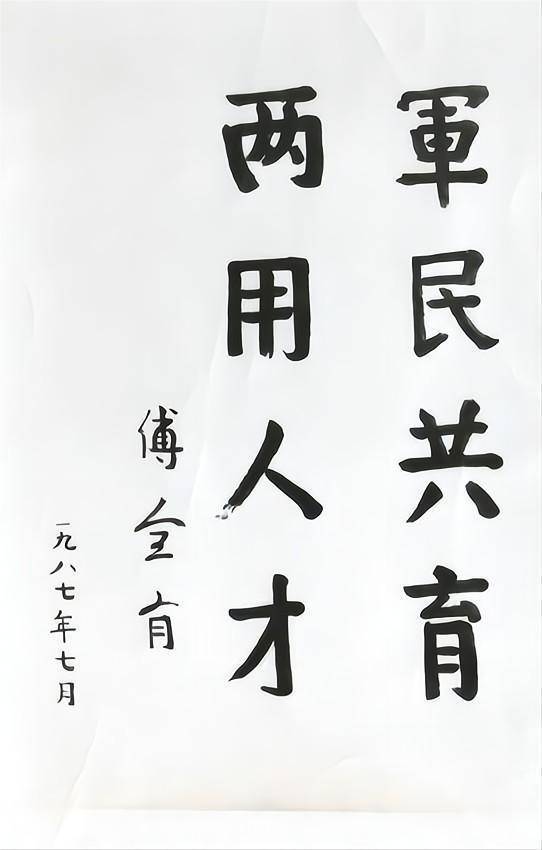 軍民共育
两用人才
傅全有
一九八七年七月